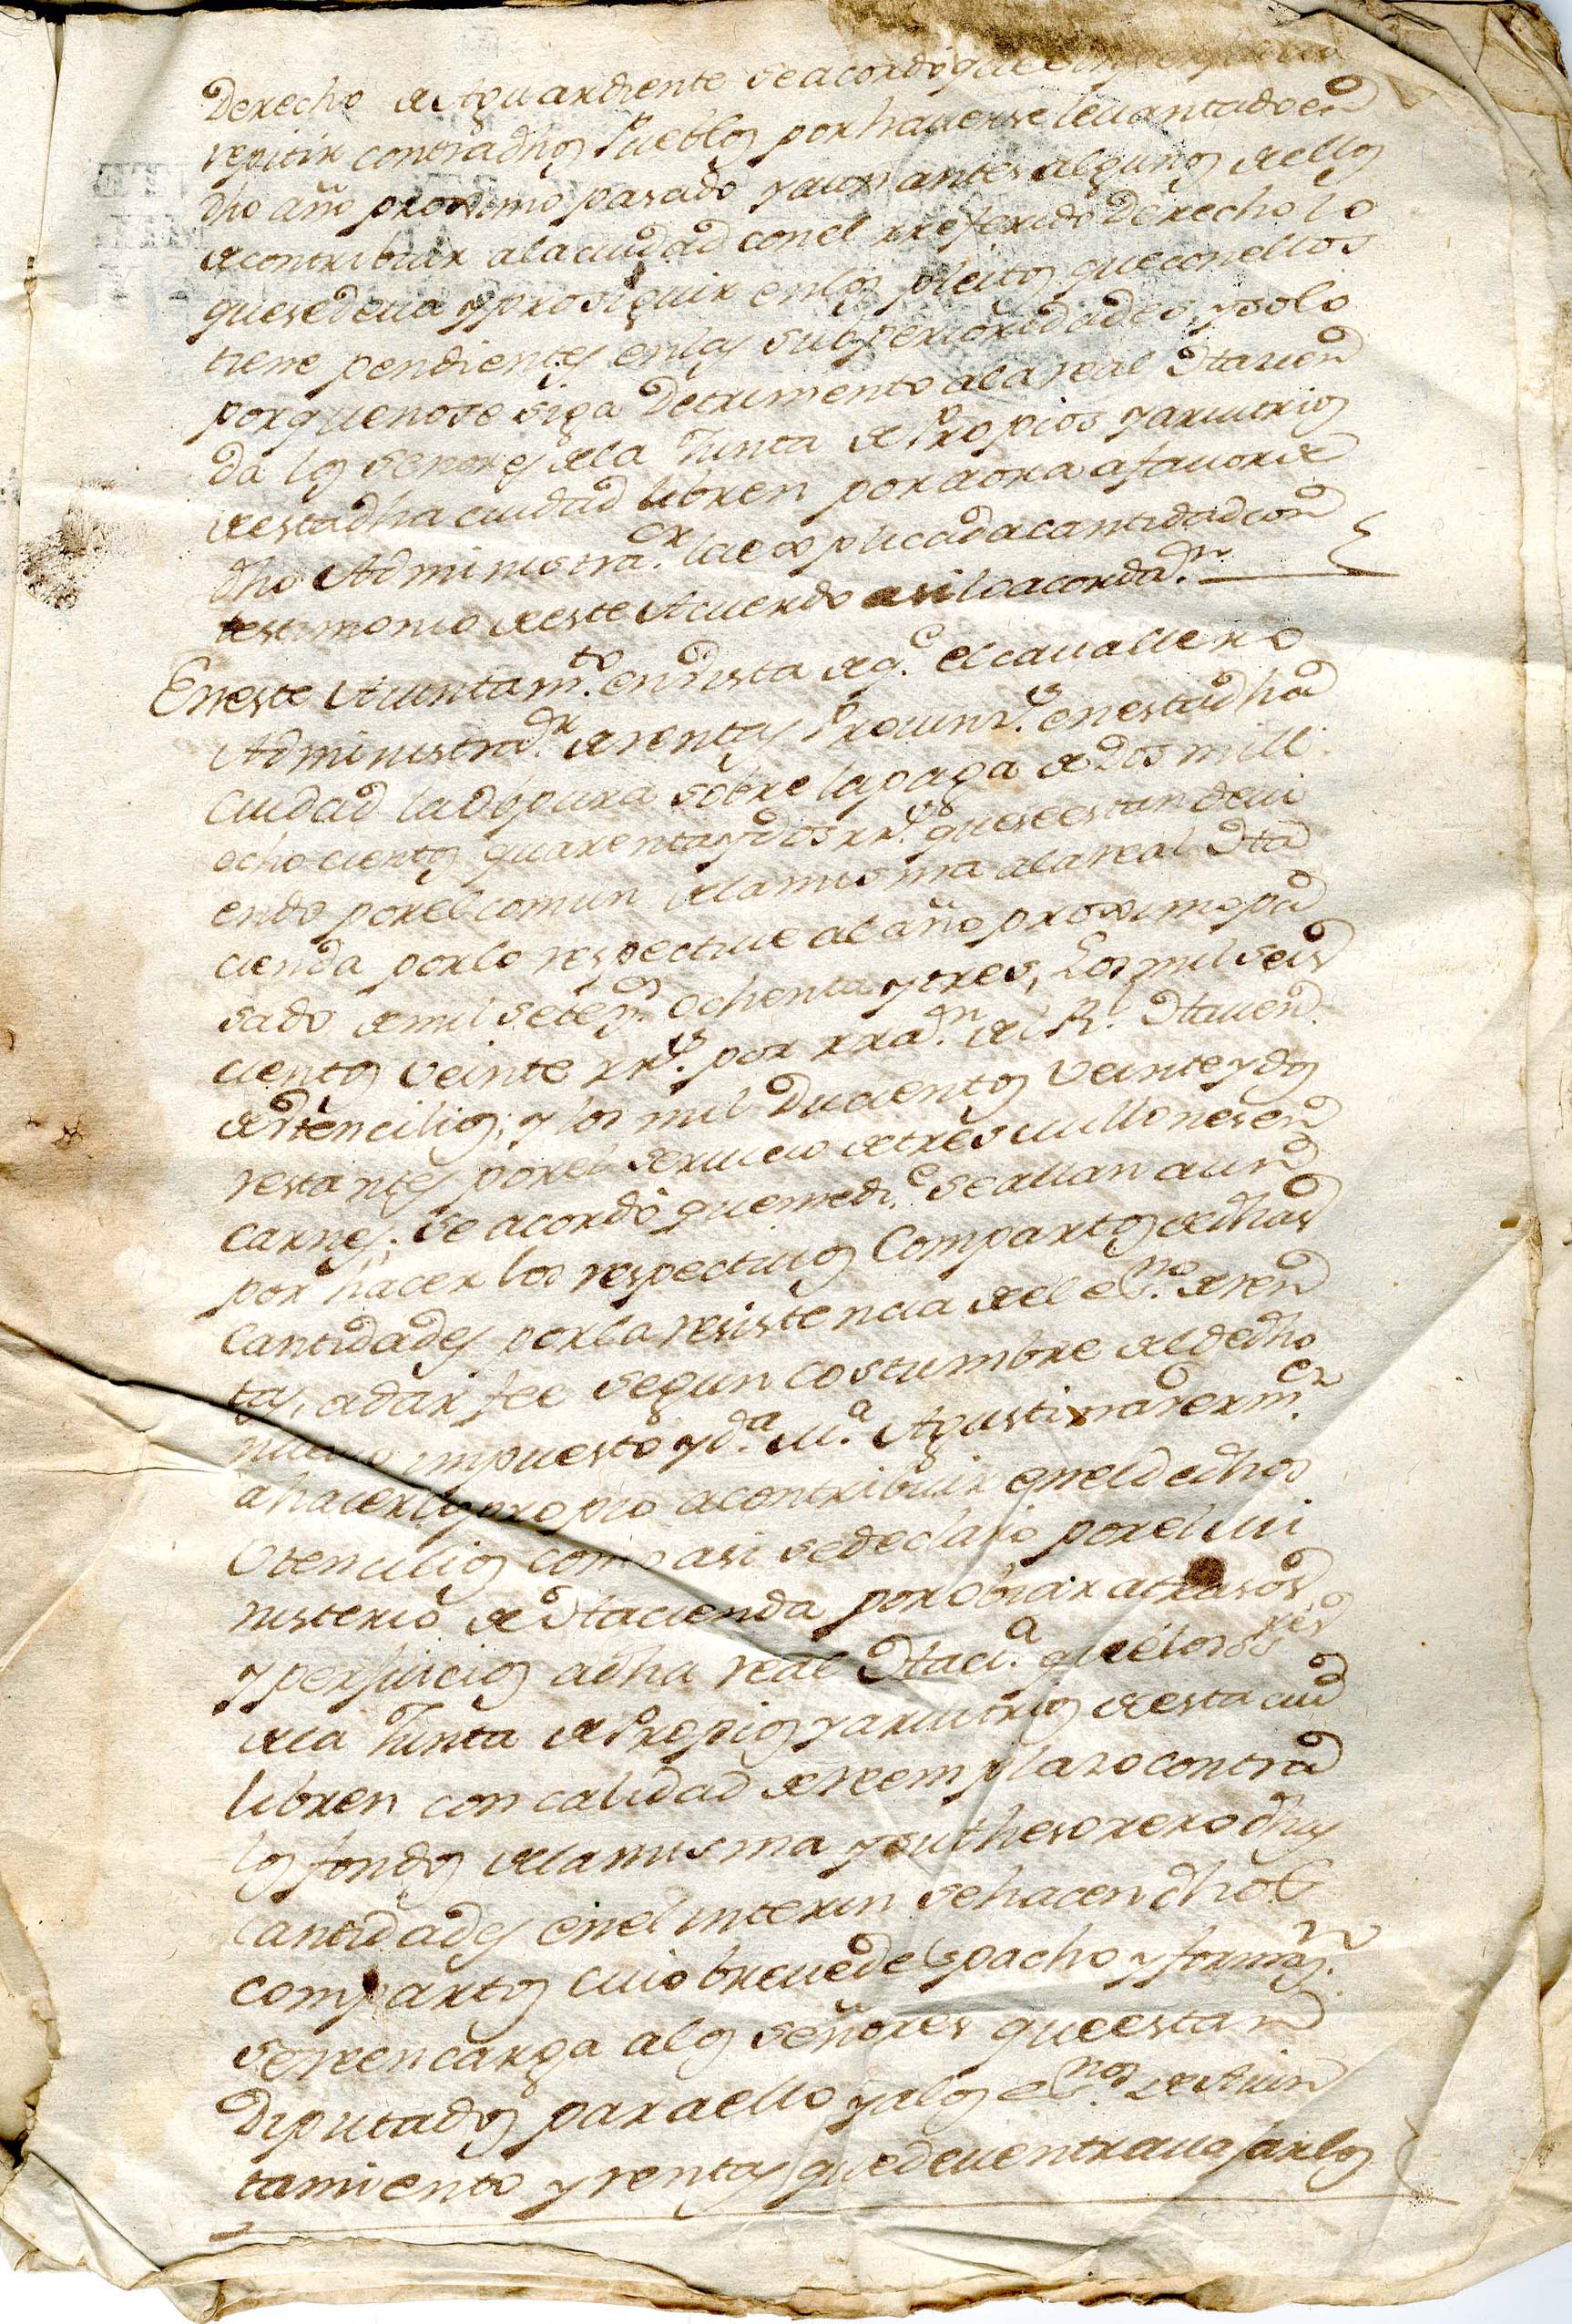 Derecho de Aguardiente se acordó que sin
repitir contra dhos Pueblos por haverse levantado en
dho año proximo pasado y aun antes algunos de ellos
a contribuir a la ciudad con el rreferido Derecho lo
que se deva y prosiguir en los pleitos que con ellos
tiene pendientes en las subperioridades, y solo
porque no se siga Detrimento a la real Hacien
da los senores de la Junta de Propios y arvitrios
de esta dha ciudad libren por aora a favor de
dho Administra.or la explicada cantidad con
testimonio de este Acuerdo asi lo acorda.n
En este Aiuntam.to en vista de q.e el cavallero
Administrad.r de rentas Provinz.s en esta dha
Ciudad la apura sobre la paga de Dos mill
ochocientos quarenta y dos rr.s que se estan devi
endo por el comun de la misma a la real Ha
cienda por lo respective al año proximo pa
sado de mil setez.os ochenta y tres, Los mil seis
cientos veinte rr.s por rraz.n del R.l Haven.
de Vtencilios; y los mil Ducientos veinte y dos
restantes por el servicio de tres millones en
carnes; se acordó que medi.e se allan aun
por hacer los respectivos Compartos de dhas
Cantidades por la resistencia del es.no de ren
tas, a dar fee segun costumbre al de dho
nuevo impuesto y d.a M.a Agustina
a hacer lo propio a contribuir en el de dhos
Vtencilios como asi se declaro por el mi
nisterio de Hacienda por obiar atrasos
y perjuicios a dha real Haci.a que los ss.res
de la Junta de Propios y arvitrios de esta ciud
libren con calidad de reemplazo contra
los fondos de la misma y su thesorero dhas
Cantidades en el interin se hacen dhos
compartos cuio breve despacho y formaz.n
se reencarga a los señores que estan
Diputados para ello y a los es.nos de Aiun
tamiento y rentas que deven travajarlos